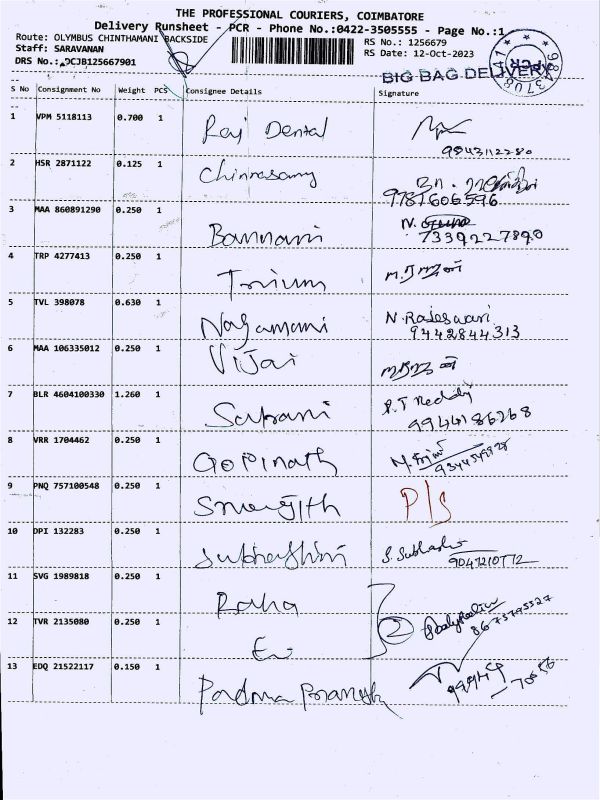 THE PROFESSIONAL COURIERS, COIMBATORE
Delivery Runsheet - PCR - Phone No.:0422-3505555 - Page No.:1
Route: OLYMBUS CHINTHAMANI BACKSIDE
RS No.: 1256679
Staff: SARAVANAN
RS Date: 12-Oct-2023
DRS No.: DCJB125667901
BIG BAG DELIVERY
PCR
S No Consignment No Weight PCS Consignee Details Signature
1 VPM 5118113 0.700 1 Raj Dental
9543112280
2 HSR 2871122 0.125 1 Chinnasamy
9787606596
3 MAA 860891290 0.250 1 Bannani N.
7339227890
4 TRP 4277413 0.250 1 Trium
5 TVL 398078 0.630 1 Nagamani N. Rajeswari
9442844313
6 MAA 106335012 0.250 1 Vijai
7 BLR 4604100330 1.260 1 P.T Reddy
9944186268
8 VRR 1704462 0.250 1 Gopinath
9 PNQ 757100548 0.250 1 P/S
10 DPI 132283 0.250 1 Subhashini S. Subhashi
11 SVG 1989818 0.250 1
12 TVR 2135080 0.250 1 2
13 EDQ 21522117 0.150 1 Padma